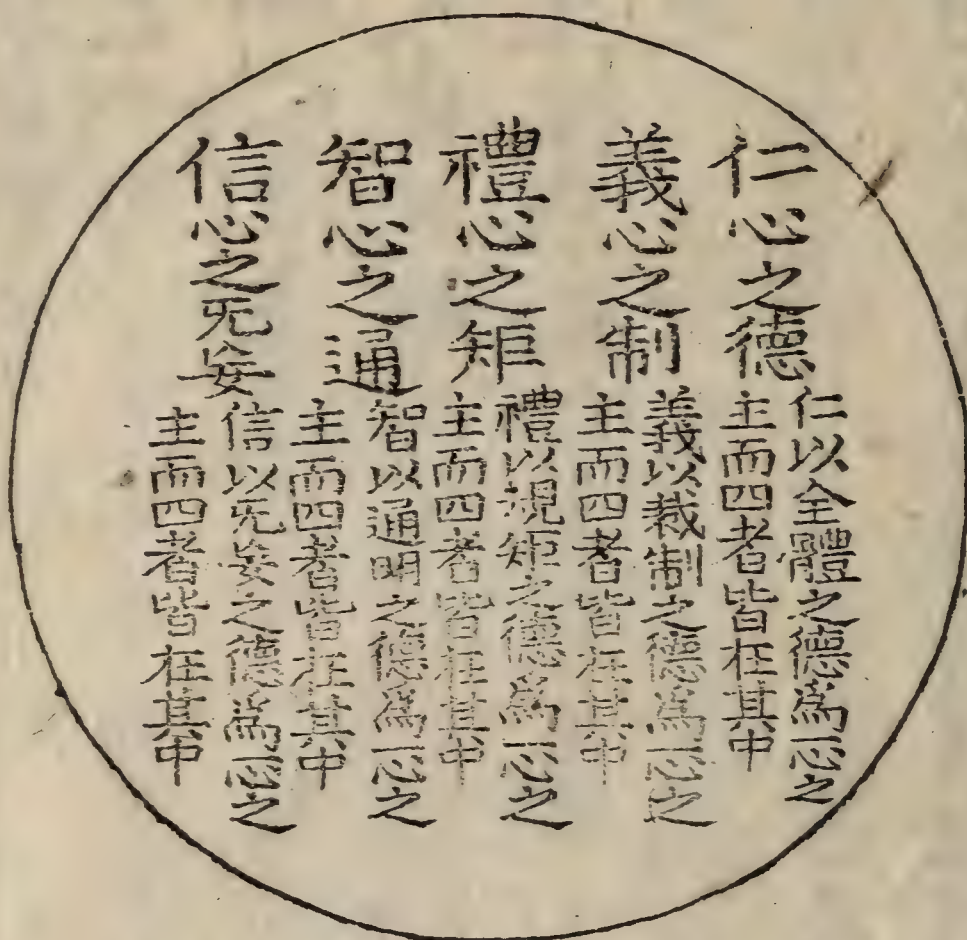 仁心之德
仁以全體之德爲心之
主而四者皆在其中
義心之制
義以裁制之德爲心之
主而四者皆在其中
禮心之矩
禮以規矩之德爲心之
主而四者皆在其中
智心之通
智以通明之德爲心之
主而四者皆在其中
信心之无妄
信以无妄之德爲心之
主而四者皆在其中